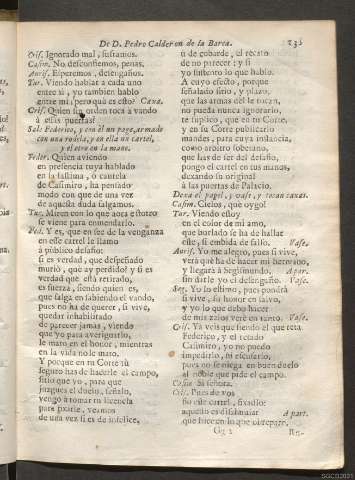 De D. Pedro Calderon de la Barca. 235
Crif. Ignorado mal, suframos.
Casim. No desconfiemos, penas.
Aurif. Esperemos, desengaños.
Tur. Viendo hablar à cada uno
entre si, yo tambien hablo
entre mi; pero quà es esto? Caxa.
Crif. Quien sin orden toca à vando
à essas puertas?
Sale Federico, y con èl un page, armado
con una rodela, y en ella un cartel,
y el otro en la mano.
Feder. Quien aviendo
en presencia tuya hablado
en la lastima, ò cautela
de Casimiro, ha pensado
modo con que de una vez
de aquesta duda salgamos.
Tur. Miren con lo que aora estotro
se viene para enmendarlo.
Fed. Y es, que en fee de la venganza
en este cartel le llamo
à publico desafio:
si es verdad, que despeñado
muriò, que ay perdido? y si es
verdad que està retirado,
es fuerza, siendo quien es,
que salga en sabiendo el vando,
pues no ha de querer, si vive,
quedar inhabilitado
de parecer jamàs, viendo
que yo para averiguarlo,
le mato en el honor, mientras
en la vida no le mato.
Y porque en tu Corte tù
seguro has de hacerle el campo,
sitio que yo, para que
juzgues el duelo, señalo,
vengo à tomar tu licencia
para fixarle, veamos
de una vez si es de infelice,
ù de cobarde, el recato
de no parecer; y si
yo sustento lo que hablo.
A cuyo efecto, porque
señalado sitio, y plazo,
que las armas dèl le tocan,
no pueda nunca ignorarlo,
te suplico, que en tu Corte,
y en su Corte publicarlo
mandes, para cuya instancia,
como arbitro soberano,
que has de ser del desafio,
pongo el cartel en tus manos,
dexando su original
à las puertas de Palacio.
Dexa el papel, y vase, y tocan caxas.
Casim. Cielos, què oygo!
Tur. Viendo estoy
en el color de mi amo,
que burlado se ha de hallar
este, si embida de falso. Vase.
Aurif. Yo me alegro, pues si vive,
verà què ha de hacer mi hermano,
y llegarà à Segismundo, A part.
sin darle yo el desengaño. Vase.
Seg. Yo lo estimo, pues pondrà
si vive, su honor en salvo,
y yo lo que debo hacer
de mis zelos verè en tanto. Vase.
Crif. Ya veis que siendo el que reta
Federico, y el retado
Casimiro, yo no puedo
impedirlo, ni escusarlo,
pues no se niega en buen duelo
al noble que pide el campo.
Casim. Sì señora.
Crif. Pues vos
no este cartel, fixadlo:
aquesto es dissimular A part.
que hice en lo que
Gg 2